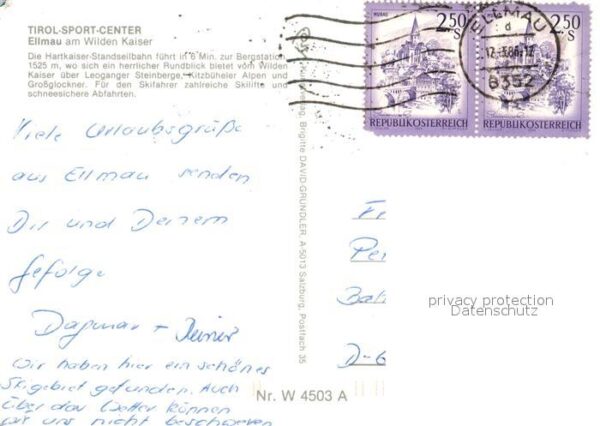 TIROL-SPORT-CENTER
Ellmau am Wilden Kaiser
Die Hartkaiser-Standseilbahn führt in 6 Min. zur Bergstation
1525 m, wo sich ein herrlicher Rundblick bietet vom Wilden
Kaiser über Leoganger Steinberge, Kitzbüheler Alpen und
Großglockner. Für den Skifahrer zahlreiche Skilifte und
schneesichere Abfahrten.
Viele Urlaubsgrüße
aus Ellmau senden
Dir und Deinem
Gefolge
Dagmar + Reiner
Wir haben hier ein schönes
Skigebiet gefunden. Auch
über das Wetter können
wir uns nicht beschweren
Brigitte DAVID-GRÜNDLER, A-5013 Salzburg, Postfach 35
Nr. W 4503 A
MURAU
2.50 S
REPUBLIK ÖSTERREICH
2.50 S
REPUBLIK ÖSTERREICH
ELLMAU
d
6352
Fr
Pe
Ba
D-6
privacy protection
Datenschutz